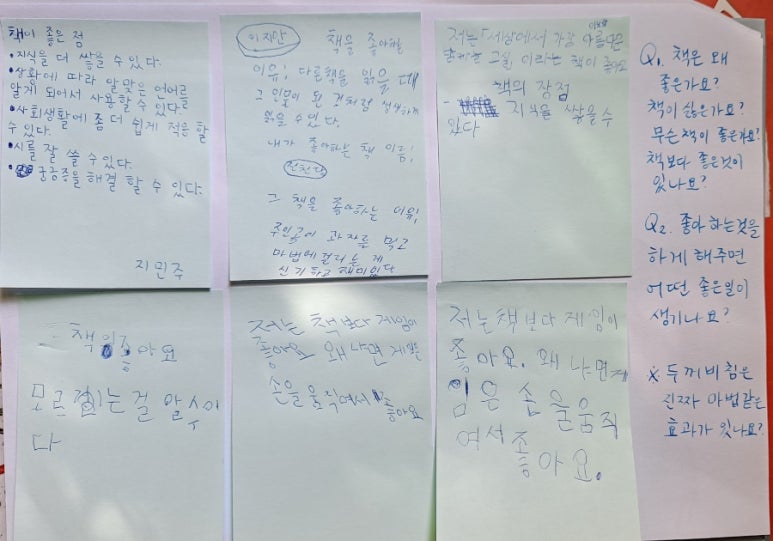 책이 좋은 점
• 지식을 더 쌓을 수 있다.
• 상황에 따라 알맞은 언어를
알게 되어서 사용할 수 있다.
• 사회생활에 좀 더 쉽게 적응 할
수 있다.
• 시를 잘 쓸 수 있다.
• 궁금증을 해결 할 수 있다.
지민주
이지안
책을 좋아하는
이유; 다른책을 읽을 때
그 인물이 된 것처럼
읽을 수 있다.
내가 좋아하는 책 이름;
전천당
그 책을 좋아하는 이유;
주인공이 과자를 먹고
마법에 걸리는 게
신기하고 재미있다
저는 「세상에서 가장 아름다운
이라는 책이 좋아요
책의 장점
- 지식을 쌓을 수
있다
책이 좋아요
모르는 걸 알 수 이
다
저는 책보다 게임이
좋아요 왜냐면 게임은
손을 움직여서 좋아요
저는 책보다 게임이
좋아요. 왜냐면 게
임은 손을 움직
여서 좋
아요.
Q1. 책은 왜
좋은가요?
책이 싫은가요?
무슨 책이 좋은가요?
책보다 좋은것이
있나요?
Q2. 좋아하는것을
하게 해주면
어떤 좋은일이
생기나요?
※ 두꺼비 침은
진짜 마법같은
효과가 있나요?